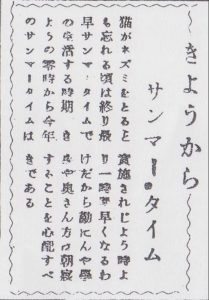 きようから
サンマー・タイム
猫がネズミをとると
も忘れる頃は終り最
早サンマー・タイムで
の生活する時期 き
ようの零時から今年
のサンマータイムは
実施されじよう時よ
り一時間早くなるわ
けだから勤にんや學
生や奥さん方は朝寝
すごことを心配すべ
きである